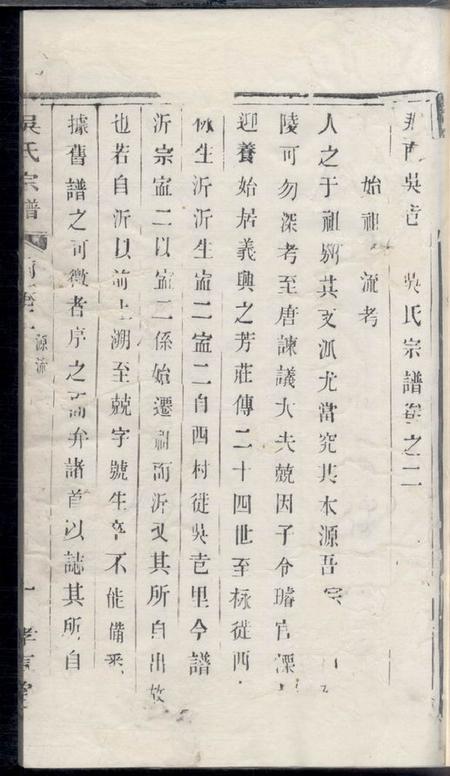 吳氏宗譜卷之二
始祖 流考
人之于祖 其支派尤當究其本源吾
陵可勿深考至唐諫議大夫兢因子令璿官溧
迎養始居義興之芳莊傳二十四世至 徙西
生沂沂生 二 二自西村徙吳 里今譜
沂宗 二以 二係始遷祠而沂又其所自出故
也若自沂以前上溯至兢字號生卒不能備悉
據舊譜之可徵者序之而弁諸首以誌其所自
吳氏宗譜 源流 一